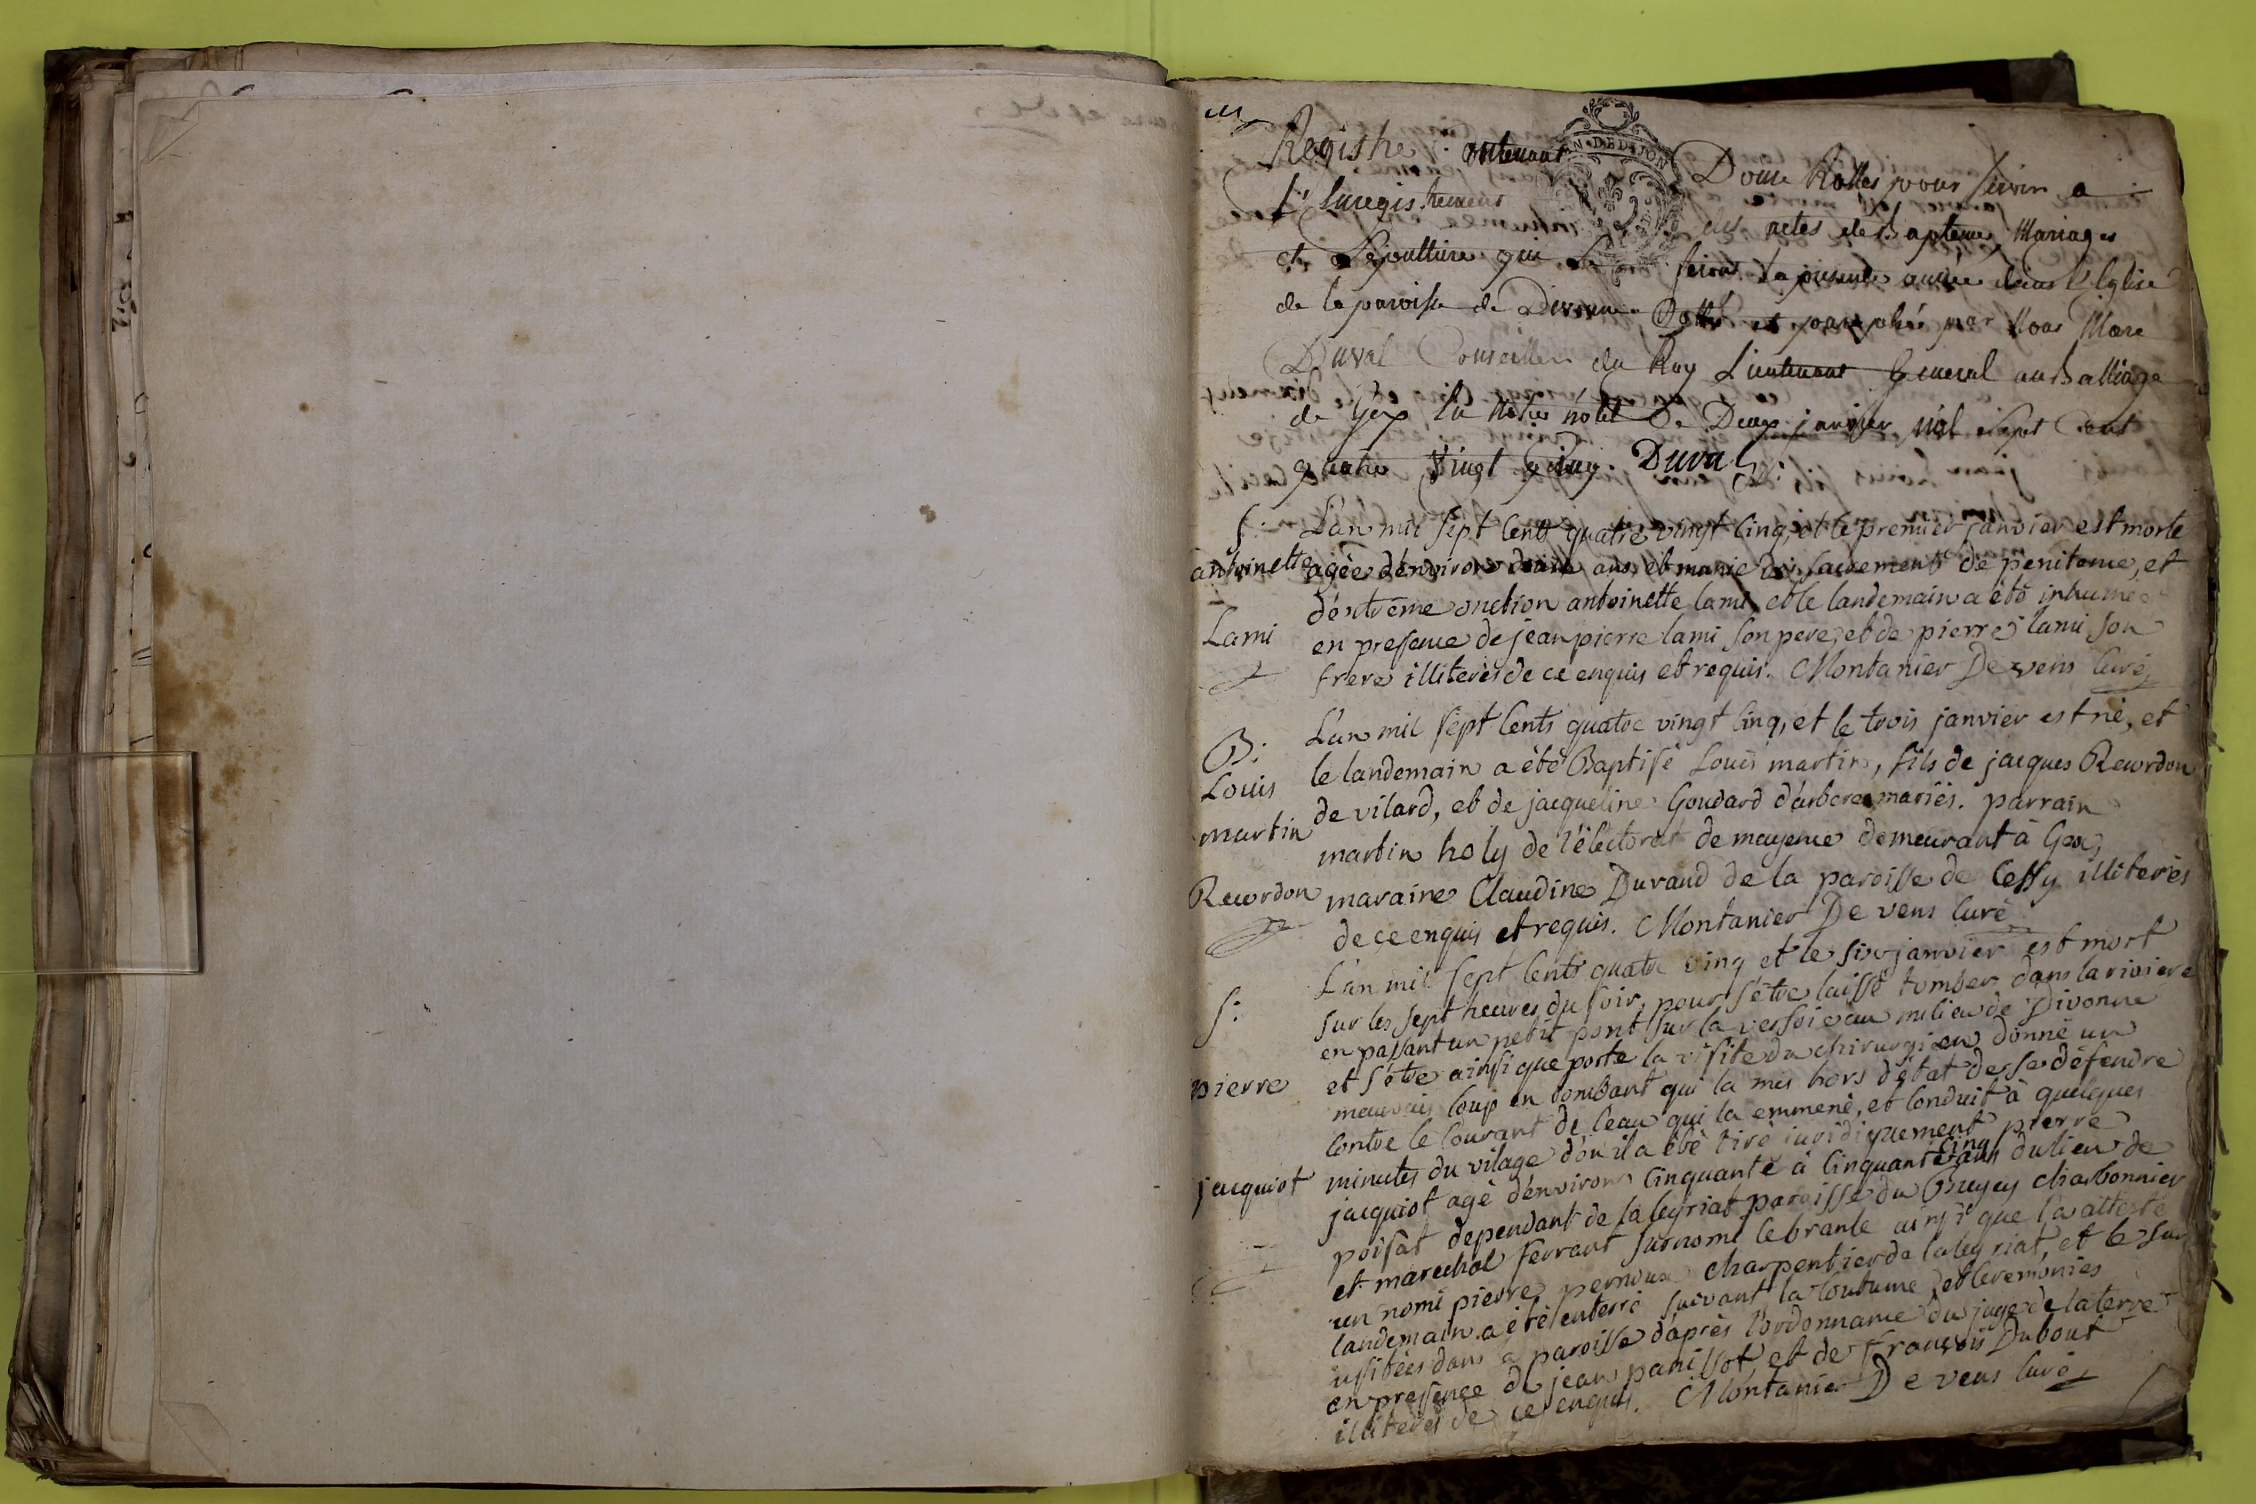 Registre contenant Douze Rolles pour servir a
l'Enregistrement des actes de Baptême, Mariages
et Sépulture qui Se feront la presente année dans l'Eglise
de la paroisse de Divonne Cotté et paraphée par Nous Marc
Duval Conseiller du Roy Lieutenant General au Balliage
de Gex En Notre hotel Ce Deux janvier Mil Sept Cent
quatre Vingt Cinq. Duval
S:
antoinette
Lami
L'an mil sept Cents quatre vingt Cinq, et le premier janvier est morte
agée d'environ ans, et munie des sacrements de penitence, et
d'extrême onction antoinette lami, et le landemain a été inhumée
en presence de jean pierre lami son pere, et de pierre lami son
frere illiterès de ce enquis et requis. Montanier De vens Curé
B:
Louis
martin
Recordon
L'an mil sept Cents quatre vingt Cinq, et le trois janvier est né, et
le landemain a été Baptisé Louis martin, fils de jacques Recordon
de vilard, et de jacqueline Goudard d'arbere mariés. parrain
martin holy de l'électorat de mayence demeurant à Gex,
maraine Claudine Durand de la paroisse de Cessy illiterès
de ce enquis et requis. Montanier De vens Curé
S:
pierre
jacquiot
L'an mil sept Cents quatre vinq et le six janvier est mort
sur les sept heures du soir, pour s'être laissé tomber dans la riviere
en passant un petit pont sur la versoie au milieu de Divonne
et s'être ainsi que porte la visite du chirurgien donné un
mauvais Coup en tombant qui la mis hors d'état de se défendre
Contre le Courant de l'eau qui la emmené, et Conduit à quelques
minutes du vilage d'ou il a été tiré juridiquement pierre
jacquiot agé d'environ Cinquante à Cinquante Cinq ans du lieu de
poisat dependant de laleyriat paroisse du charbonnier
et marechal ferrant surnomé lebranle ainsi que l'a attesté
un nomé pierre pernoux charpentier de laleyriat, et le sur
landemain a été enterré suivant la Coutume, et Ceremonies
usitées dans a paroisse d'après l'ordonnance du juge de la terre
en presence de jean panissot, et de François Dubout
illiterés de ce enquis. Montanier De vens Curé